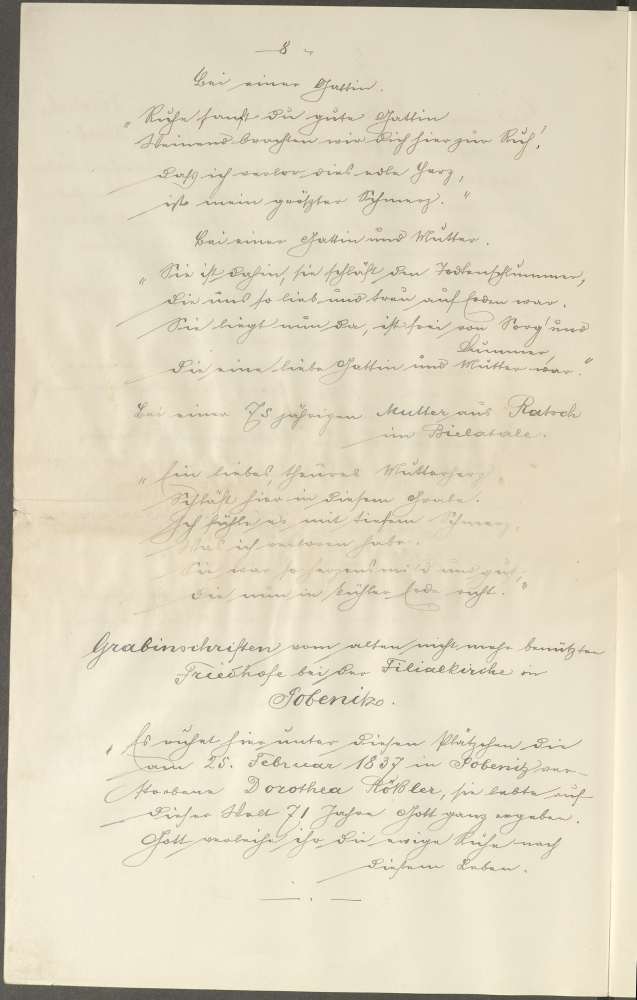 — 8 —
Bei einer Gattin.
„Ruhe sanft du gute Gattin
Weinend brachten wir dich hier zur Ruh'!
Daß ich verlor, dies edle Herz,
ist mein größter Schmerz."
Bei einer Gattin und Mutter.
„Sie ist dahin, sie schläft den Todtenschlummer,
Die uns so lieb und treu auf Erden war.
Sie liegt nun da, ist frei von Sorg' und
Kummer,
Die eine liebe Gattin und Mutter war."
Bei einer 75 jährigen Mutter aus Ratsch
im Bielatale.
„Ein liebes, theures Mutterherz
Schläft hier in diesem Grabe.
Ich fühle es mit tiefem Schmerz,
Was ich verloren habe.
Sie war so herzensmild und gut,
Die nun in kühler Erde ruht."
Grabinschriften vom alten nicht mehr benützten
Friedhofe bei der Filialkirche in
Pobenitz.
„Es ruhet hier unter diesem Plätzchen die
am 25. Februar 1837 in Pobenitz ver-
storbene Dorothea Rößler, sie lebte auf
dieser Welt 71 Jahre Gott ganz ergeben.
Gott verleihe ihr die ewige Ruhe nach
diesem Leben.